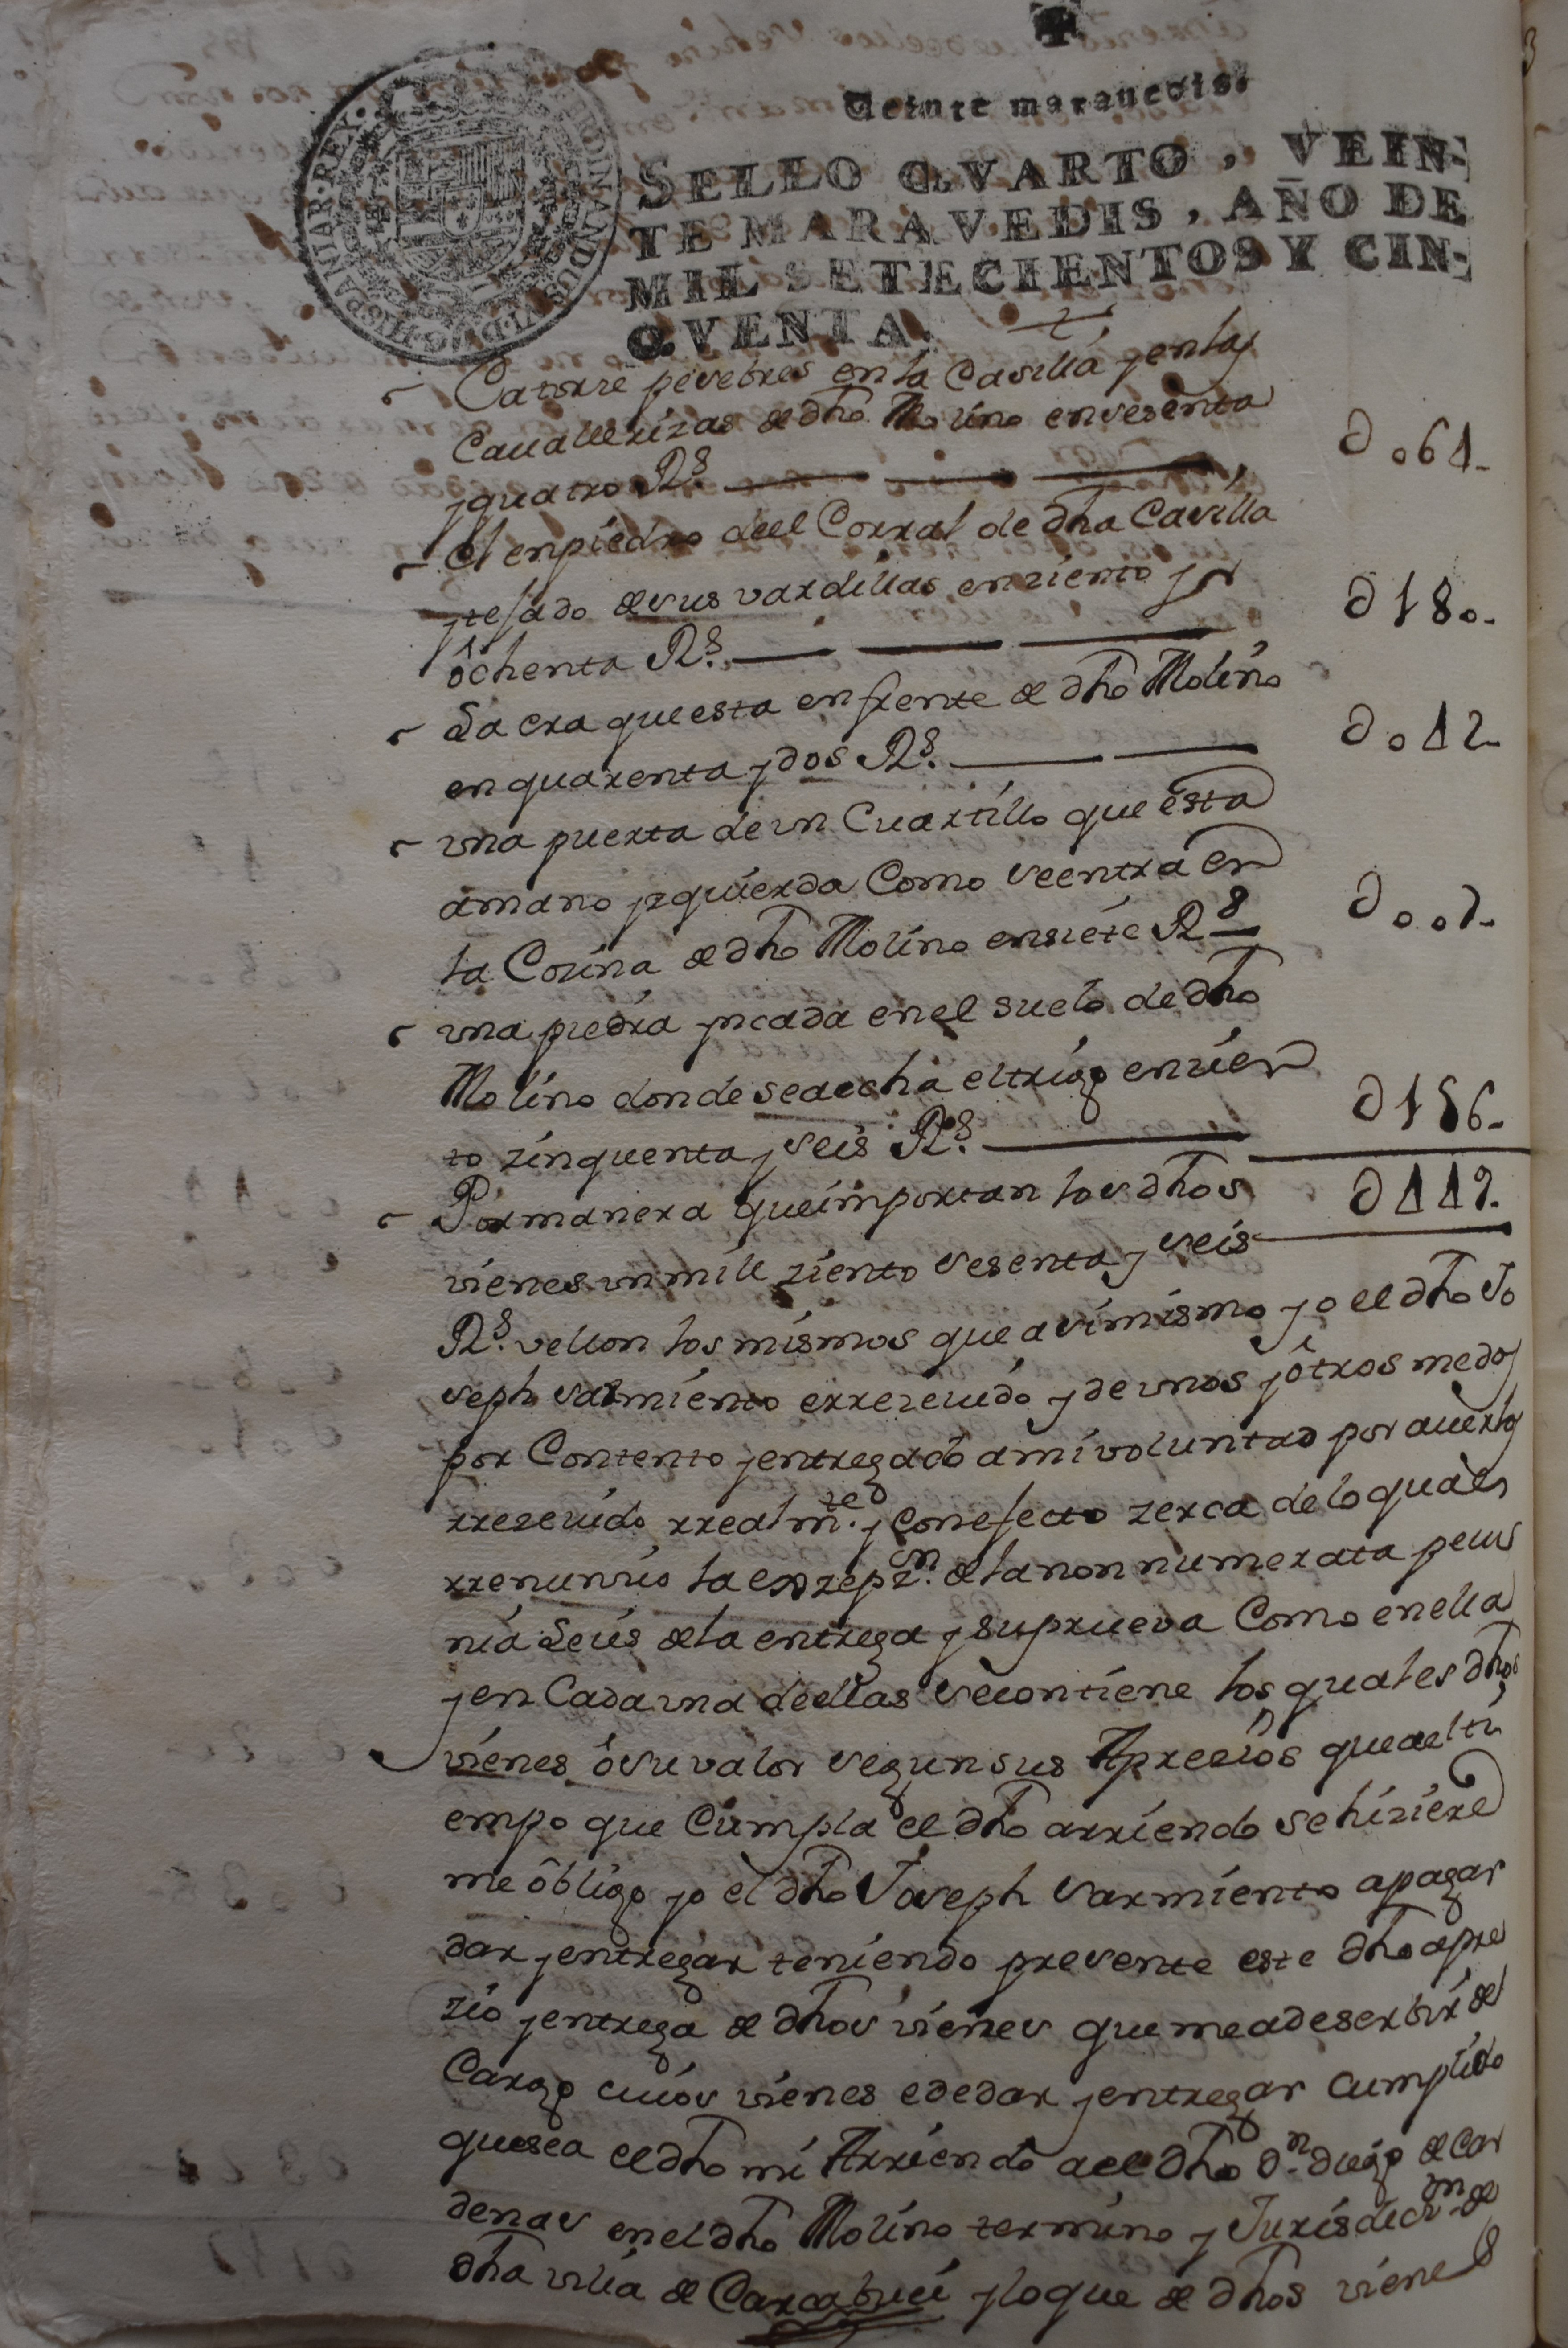 Veinte maravedis.
SELLO QVARTO, VEIN-
TE MARAVEDIS, AÑO DE
MIL SETECIENTOS Y CIN-
QVENTA.
Catorze pesebres en la Casilla y en las
Cauallerizas de dho Molino en sesenta
y quatro Rs. 064-
el enpiedro deel Corral de dha Casilla
y tejado de sus vardillas en ziento y
ôchenta Rs. 180-
La era que esta en frente de dho Molino
en quarenta y dos Rs. 042-
una puerta de un Cuartillo que esta
a mano yzquierda Como se entra en
la Cozina de dho Molino en siete Rs 007-
una piedra yncada en el suelo de dho
Molino donde se aecha el trigo en zien
to zinquenta y seis Rs. 156-
Por manera que importan los dhos 449.
vienes un mill ziento sesenta y seis
Rs. vellon los mismos que asimismo yo el dho Jo
seph Sarmiento errezeuido y de unos y ôtros me doy
por Contento y entregado a mi voluntad por auerlos
rrezeuido rrealmte. y con efecto zerca de lo qual
rrenunzio la exzepzn. de la non numerata pecu
nia Leies de la entrega y su prueva Como en ella
y en Cada una deellas se contiene los quales dhos
vienes ô su valor segun sus Aprezios que a el ti
empo que Cumpla el dho arriendo se hiziere
me ôbligo yo el dho Joseph Sarmiento a pagar
dar y entregar teniendo presente este dho apre
zio y entrega de dhos vienes que me a de serbir de
Cargo cuios vienes e de dar y entregar cumplido
que sea el dho mi Arriendo a el dho Dn. diego de Car
denas en el dho Molino termino y Jurisdiczn. de
dha villa de Carcabuei y lo que de dhos vienes